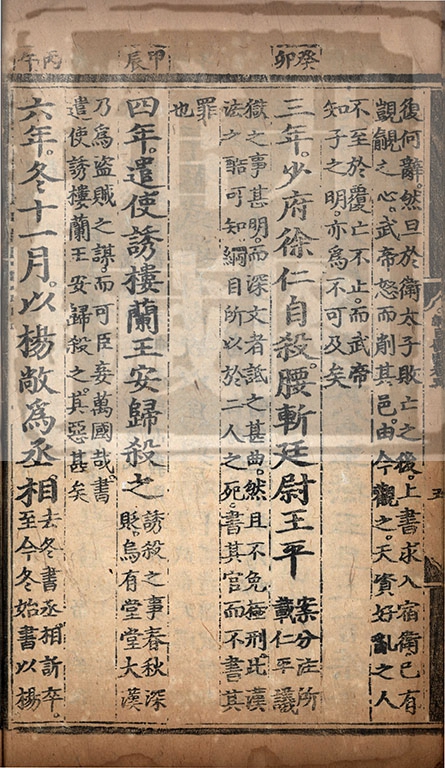 復何辭。然旦於衛太子敗亡之後。上書求入宿衛已有
覬覦之心。武帝怒而削其邑。由今觀之。天資好亂之人
不至於覆亡不止。而武帝
知子之明。亦為不可及矣
癸卯
三年。少府徐仁自殺。腰斬廷尉王平
案分注所
載仁平議
獄之事甚明。而深文者詆之甚曲。然且不免極刑。此漢
法之酷可知。綱目所以於二人之死。書其官而不書其
罪
也
甲辰
四年。遣使誘樓蘭王安歸殺之
誘殺之事春秋深
貶。烏有堂堂大漢
乃為盜賊之謀。而可臣妾萬國哉。書
遣使誘樓蘭王安歸殺之。其惡甚矣
丙午
六年。冬十一月。以楊敞為丞相
去冬書丞相訢卒。
至今冬始書以楊
五